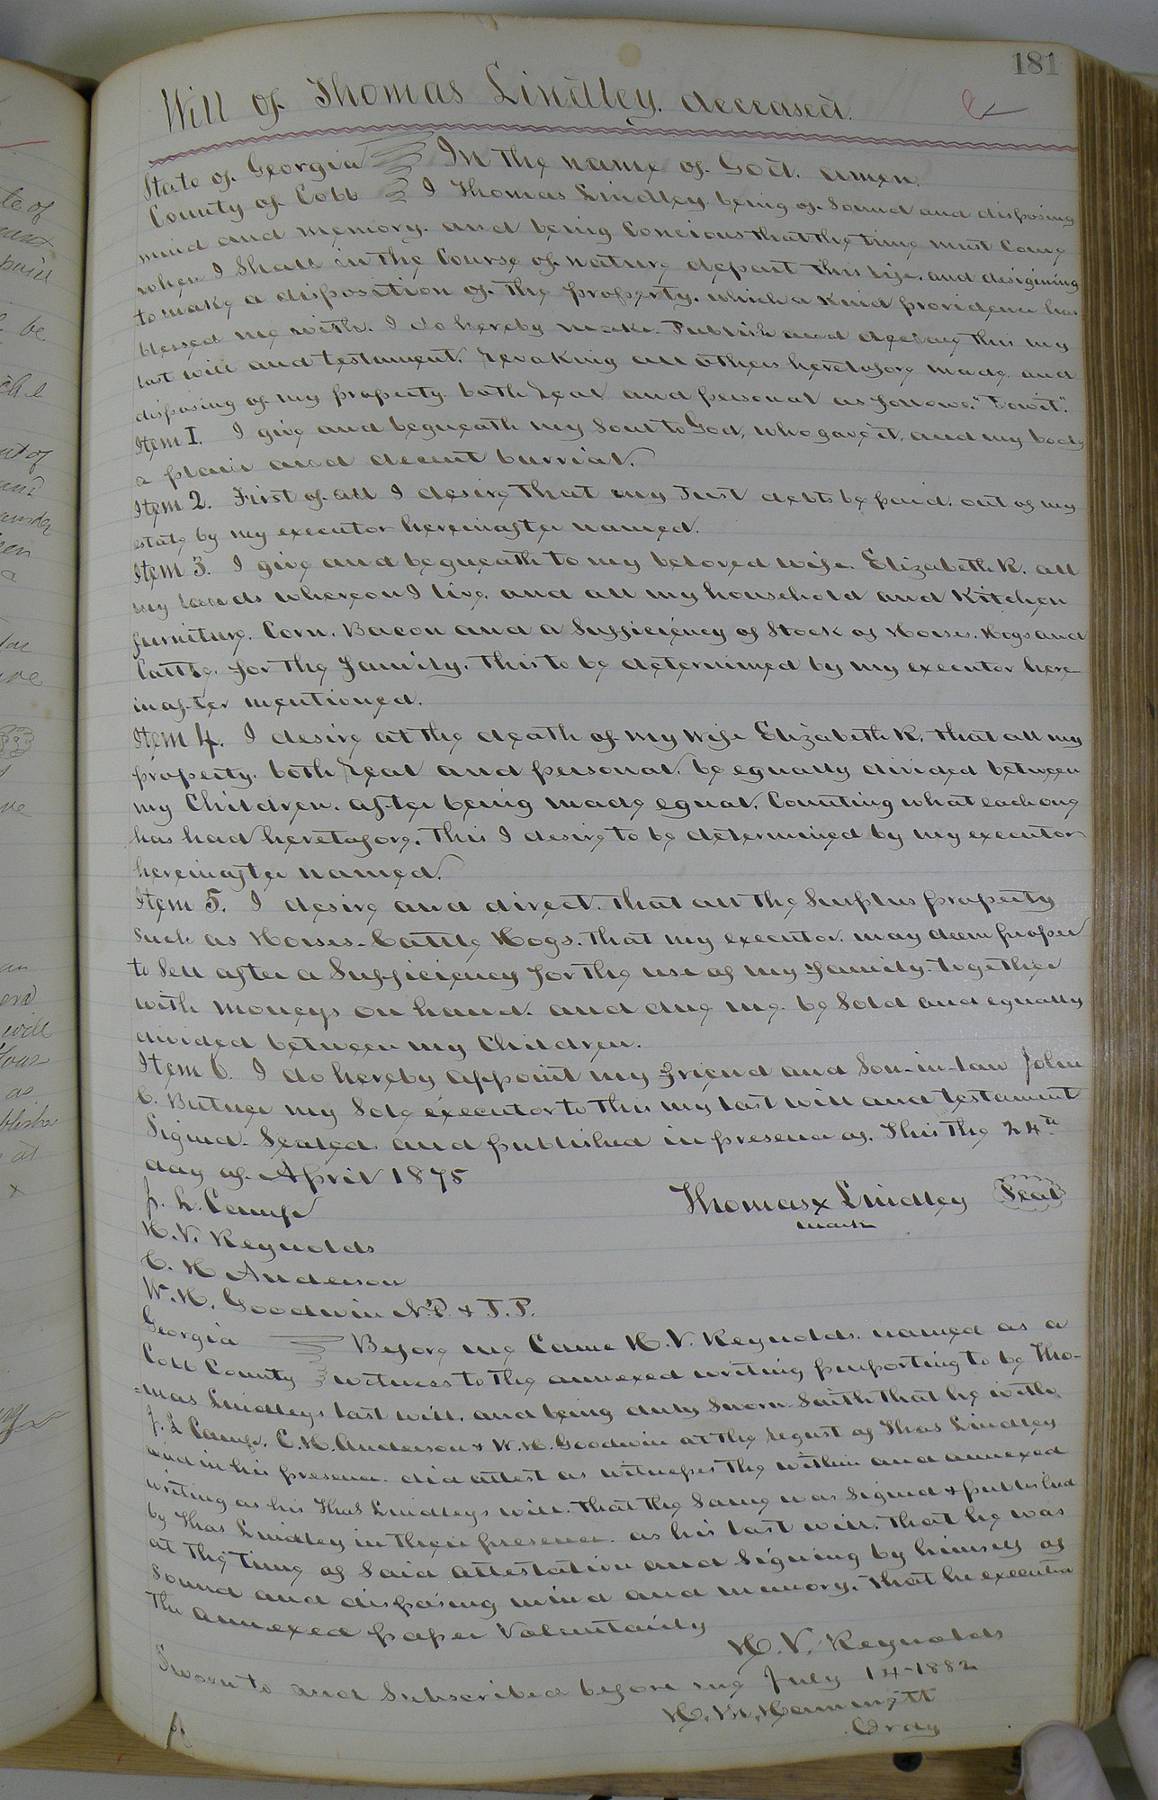 181
Will of Thomas Lindley. deceased.
State of Georgia In the name of God. amen.
County of Cobb I Thomas Lindley being of Sound and disposing
mind and memory. and being Concious that the time must Come
when I Shall in the Course of nature depart this life. and desigining
to make a disposition of the property. which a Kind providence has
blessed me with. I do hereby make. Publish and declare this my
last will and testament. revoking all others heretofore made and
disposing of my property both real and personal as follows. "Towit".
Item 1. I give and bequeath my Soul to God, who gave it, and my body
a plain and decent burrial.
Item 2. First of all I desire that my Just debts be paid. out of my
estate by my executor hereinafter named.
Item 3. I give and bequeath to my beloved wife. Elizabeth R. all
my lands whereon I live, and all my household and Kitchen
furniture. Corn. Bacon and a Sufficiency of Stock of Horses. Hogs and
Cattle. for the family. This to be determined by my executor here
inafter mentioned.
Item 4. I desire at the death of my wife Elizabeth R. that all my
property. both real and personal. be equally divided between
my Children. after being made equal. Counting what each one
has had heretofore. This I desire to be determined by my executor
hereinafter named.
Item 5. I desire and direct. that all the Surplus property
Such as Horses. Cattle Hogs. that my executor. may deem proper
to Sell after a Sufficiency for the use of my family. together
with moneys on hand. and due me be Sold and equally
divided between my Children.
Item 6. I do hereby appoint my friend and Son-in-law John
C. Butner my Sole executor to this my last will and testament
Signed. Sealed. and published in presence of. This the 24th
day of April 1875
Thomas x Lindley Seal
mark
J. L. Camp
H. V. Reynolds
C. H Anderson
W. H. Goodwin N.P. & J. P.
Georgia Before me Came H. V. Reynolds. named as a
Cobb County witness to the annexed writing purporting to be Tho-
mas Lindleys last will. and being duly Sworn Saith that he with
J. L Camp. C. H. Anderson & W. H. Goodwin at the request of Thos Lindley
and in his presence. did attest as witnesses the within and annexed
writing as his Thos Lindleys will. that the Same was Signed & published
by Thos Lindley in their presence as his last will. that he was
at the time of Said attestation and Signing by himself of
Sound and disposing mind and memory. that he executed
the annexed paper Voluntarily
H. V. Reynolds
Sworn to and Subscribed before me July 14-1882
Ordy